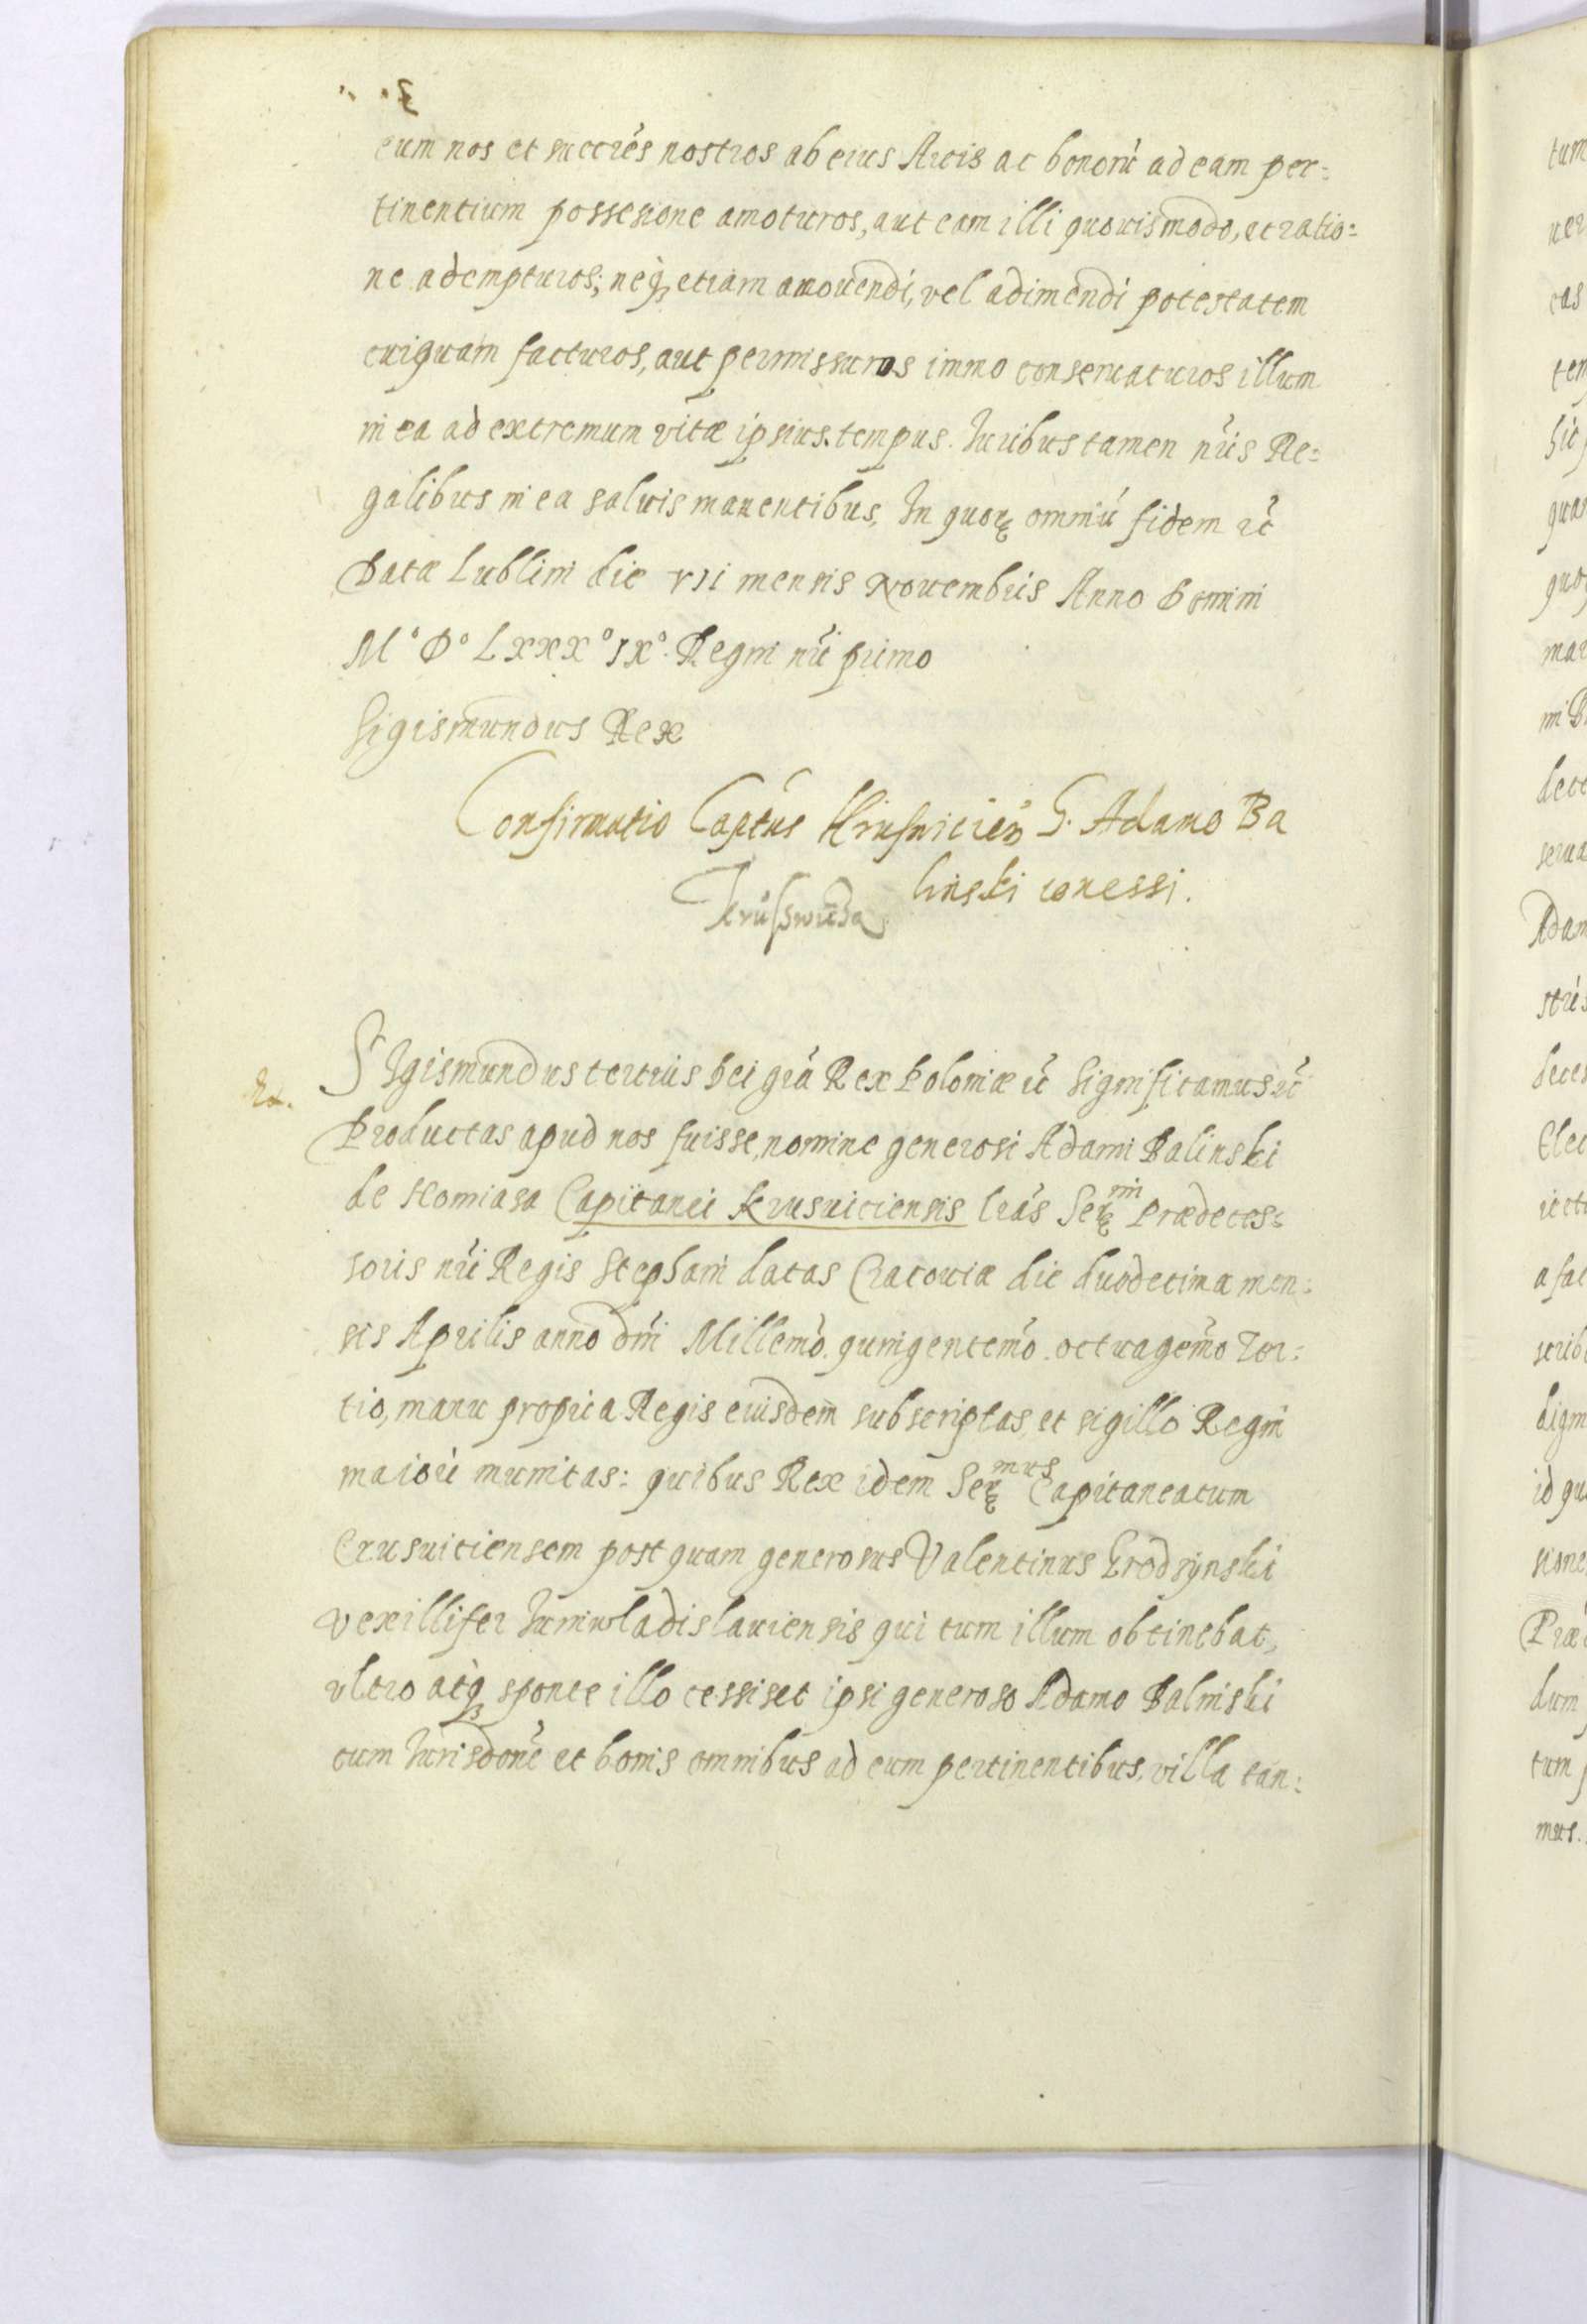 eum nos et succrēs nostros ab eius Arcis ac bonorū ad eam per=
tinentium possesione amoturos, aut eam illi quouismodo, et ratio=
ne adempturos; neq; etiam amouendi, vel adimendi potestatem
cuiquam facturos, aut permissuros immo conseruaturos illum
in ea ad extremum vitæ ipsius tempus. Iuribus tamen nr̄is Re=
galibus in ea saluis manentibus, In quorꝝ omniū fidem etc̄
Datæ Lublini die VII mensis Nouembris Anno Domini
M° D° LXXX° IX°. Regni nr̄i primo
Sigismundus Rex
Confirmatio Captus Krusuicien̄ G. Adamo Ba
linski conessi.
Krŭschwicza
SIgismundus tertius Dei grā Rex Poloniæ etc̄ Significamus etc̄
Productas apud nos fuisse, nomine generosi Adami Balinski
de Comiasa Capitanei Krusuiciensis lrās Serꝝni Prædeces=
soris nr̄i Regis Stephani datas Cracouiæ die duodecima men=
sis Aprilis anno Dn̄i Millemō. quingentemō. octuagemō Ter=
tio, manu propria Regis eiusdem subscriptas, et sigillo Regni
maiori munitas: quibus Rex idem Serꝝmus Capitaneatum
Crusuiciensem postquam generosus Valentinus Brodsÿnski
vexillifer Iuniuladislauiensis qui tum illum obtinebat,
vltro atq; sponte illo cessiset ipsi generoso Adamo Balinski
cum Iurisdonē et bonis omnibus ad eum pertinentibus, villa tan=